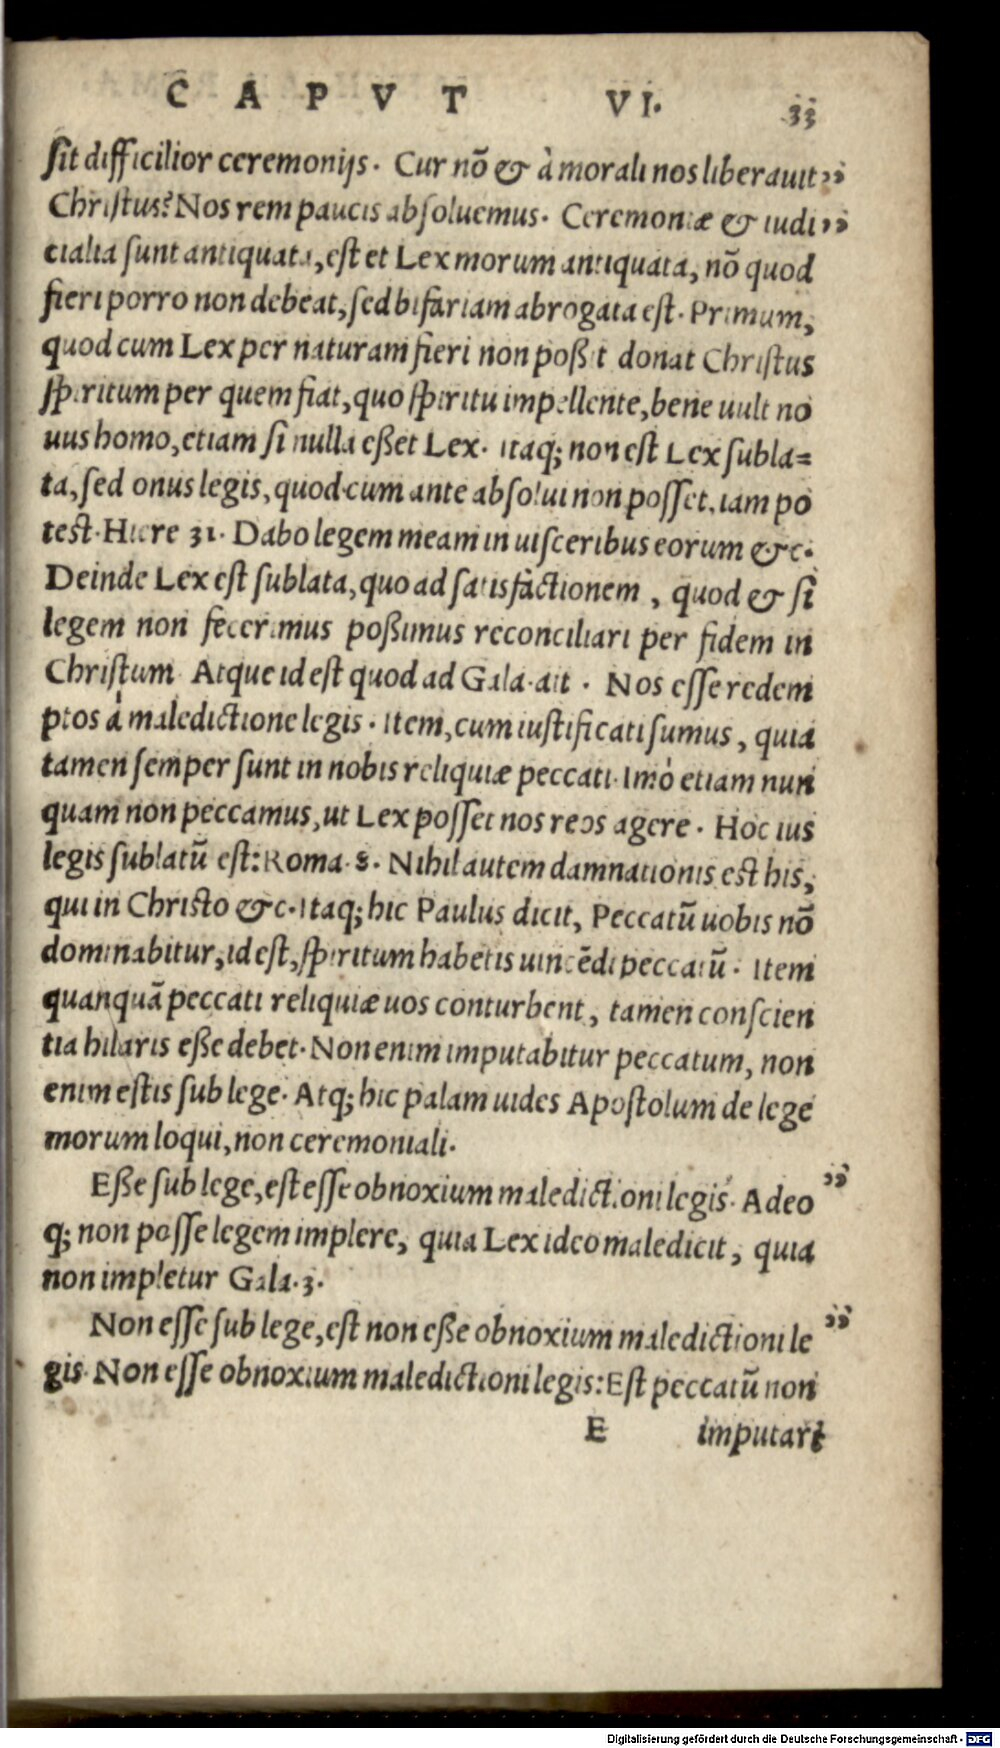 CAPVT VI. 33
sit difficilior ceremonijs. Cur nõ & à morali nos liberauit „
Christus? Nos rem paucis absoluemus. Ceremoniæ & iudi „
cialia sunt antiquata, est et Lex morum antiquata, nõ quod
fieri porro non debeat, sed bifariam abrogata est. Primum,
quod cum Lex per naturam fieri non poßit donat Christus
spiritum per quem fiat, quo spiritu impellente, bene uult no
uus homo, etiam si nulla eßet Lex. Itaq; non est Lex subla=
ta, sed onus legis, quod cum ante absolui non posset, iam po
test. Hiere 31. Dabo legem meam in uisceribus eorum &c.
Deinde Lex est sublata, quo ad satisfactionem, quod & si
legem non fecerimus poßimus reconciliari per fidem in
Christum. Atque id est quod ad Gala. ait. Nos esse redem
ptos á maledictione legis. Item, cum iustificati sumus, quia
tamen semper sunt in nobis reliquiæ peccati. Imò etiam nun
quam non peccamus, ut Lex posset nos reos agere. Hoc ius
legis sublatũ est: Roma. 8. Nihil autem damnationis est his,
qui in Christo &c. Itaq; hic Paulus dicit, Peccatũ uobis nõ
dominabitur, id est, spiritum habetis uincẽdi peccatũ. Item
quanquã peccati reliquiæ uos conturbent, tamen conscien
tia hilaris eße debet. Non enim imputabitur peccatum, non
enim estis sub lege. Atq; hic palam uides Apostolum de lege
morum loqui, non ceremoniali.
Eße sub lege, est esse obnoxium maledictioni legis. Adeo „
q; non posse legem implere, quia Lex ideo maledicit, quia
non impletur Gala. 3.
Non esse sub lege, est non eße obnoxium maledictioni le „
gis. Non esse obnoxium maledictioni legis: Est peccatũ non
E imputari
Digitalisierung gefördert durch die Deutsche Forschungsgemeinschaft - DFG